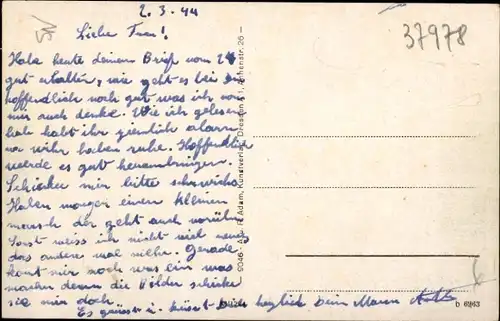 2.3.44
37978
Liebe Frau!
Habe heute deinen Brief vom 24
gut erhalten, wie geht es bei
hoffendlich noch gut was ich von
mir auch denke. Wie ich gelesen
hab habt ihr ziemlich alarm
wihr haben ruhe. Hoffendlich
werde es gut herumbringen.
Schicken mir bitte
Haben morgen einen kleinen
marsch der geht auch vorüber
Sonst weiss ich nicht viel neues
das andere mal mehr. Gerade
komt mir noch was ein was
machen denn die Bilder schicke
sie mir doch
Es grüsst u. küsst Dich herzlich Dein Mann
9046 - Adam, Kunstverlag, Dresden A 1, 26 -
b 6963